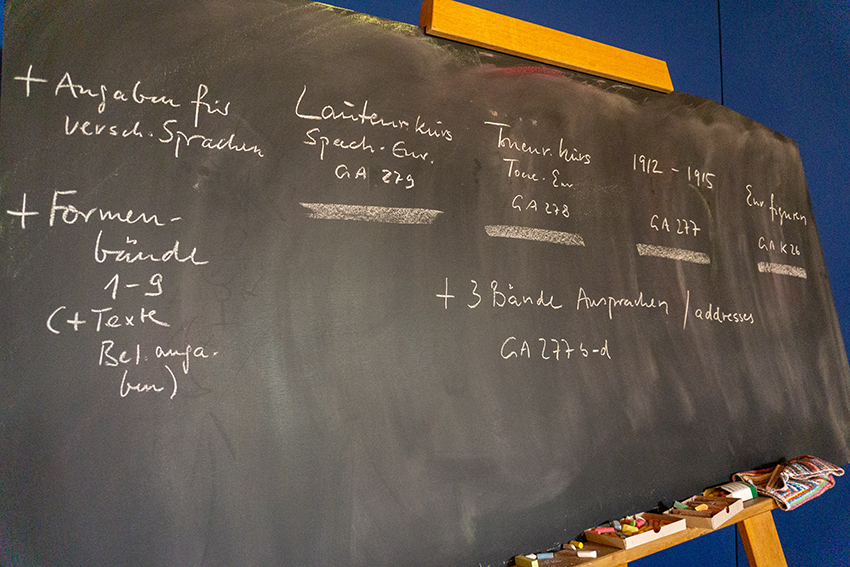 + Angaben für
versch. Sprachen
+ Formen-
bände
1-9
(+ Texte
Bel. anga-
ben)
Lauteur.kurs
Sprach-Eur.
GA 279
Toneur.kurs
Tone-Eur
GA 278
1912 - 1915
GA 277
Eur figuren
GA K26
+ 3 Bände Ansprachen / addresses
GA 277 b-d